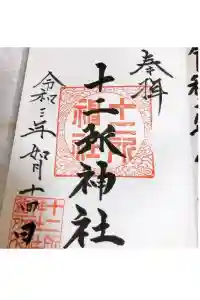 奉拝
十二所神社
十二所
神社
令和三年如月十四日